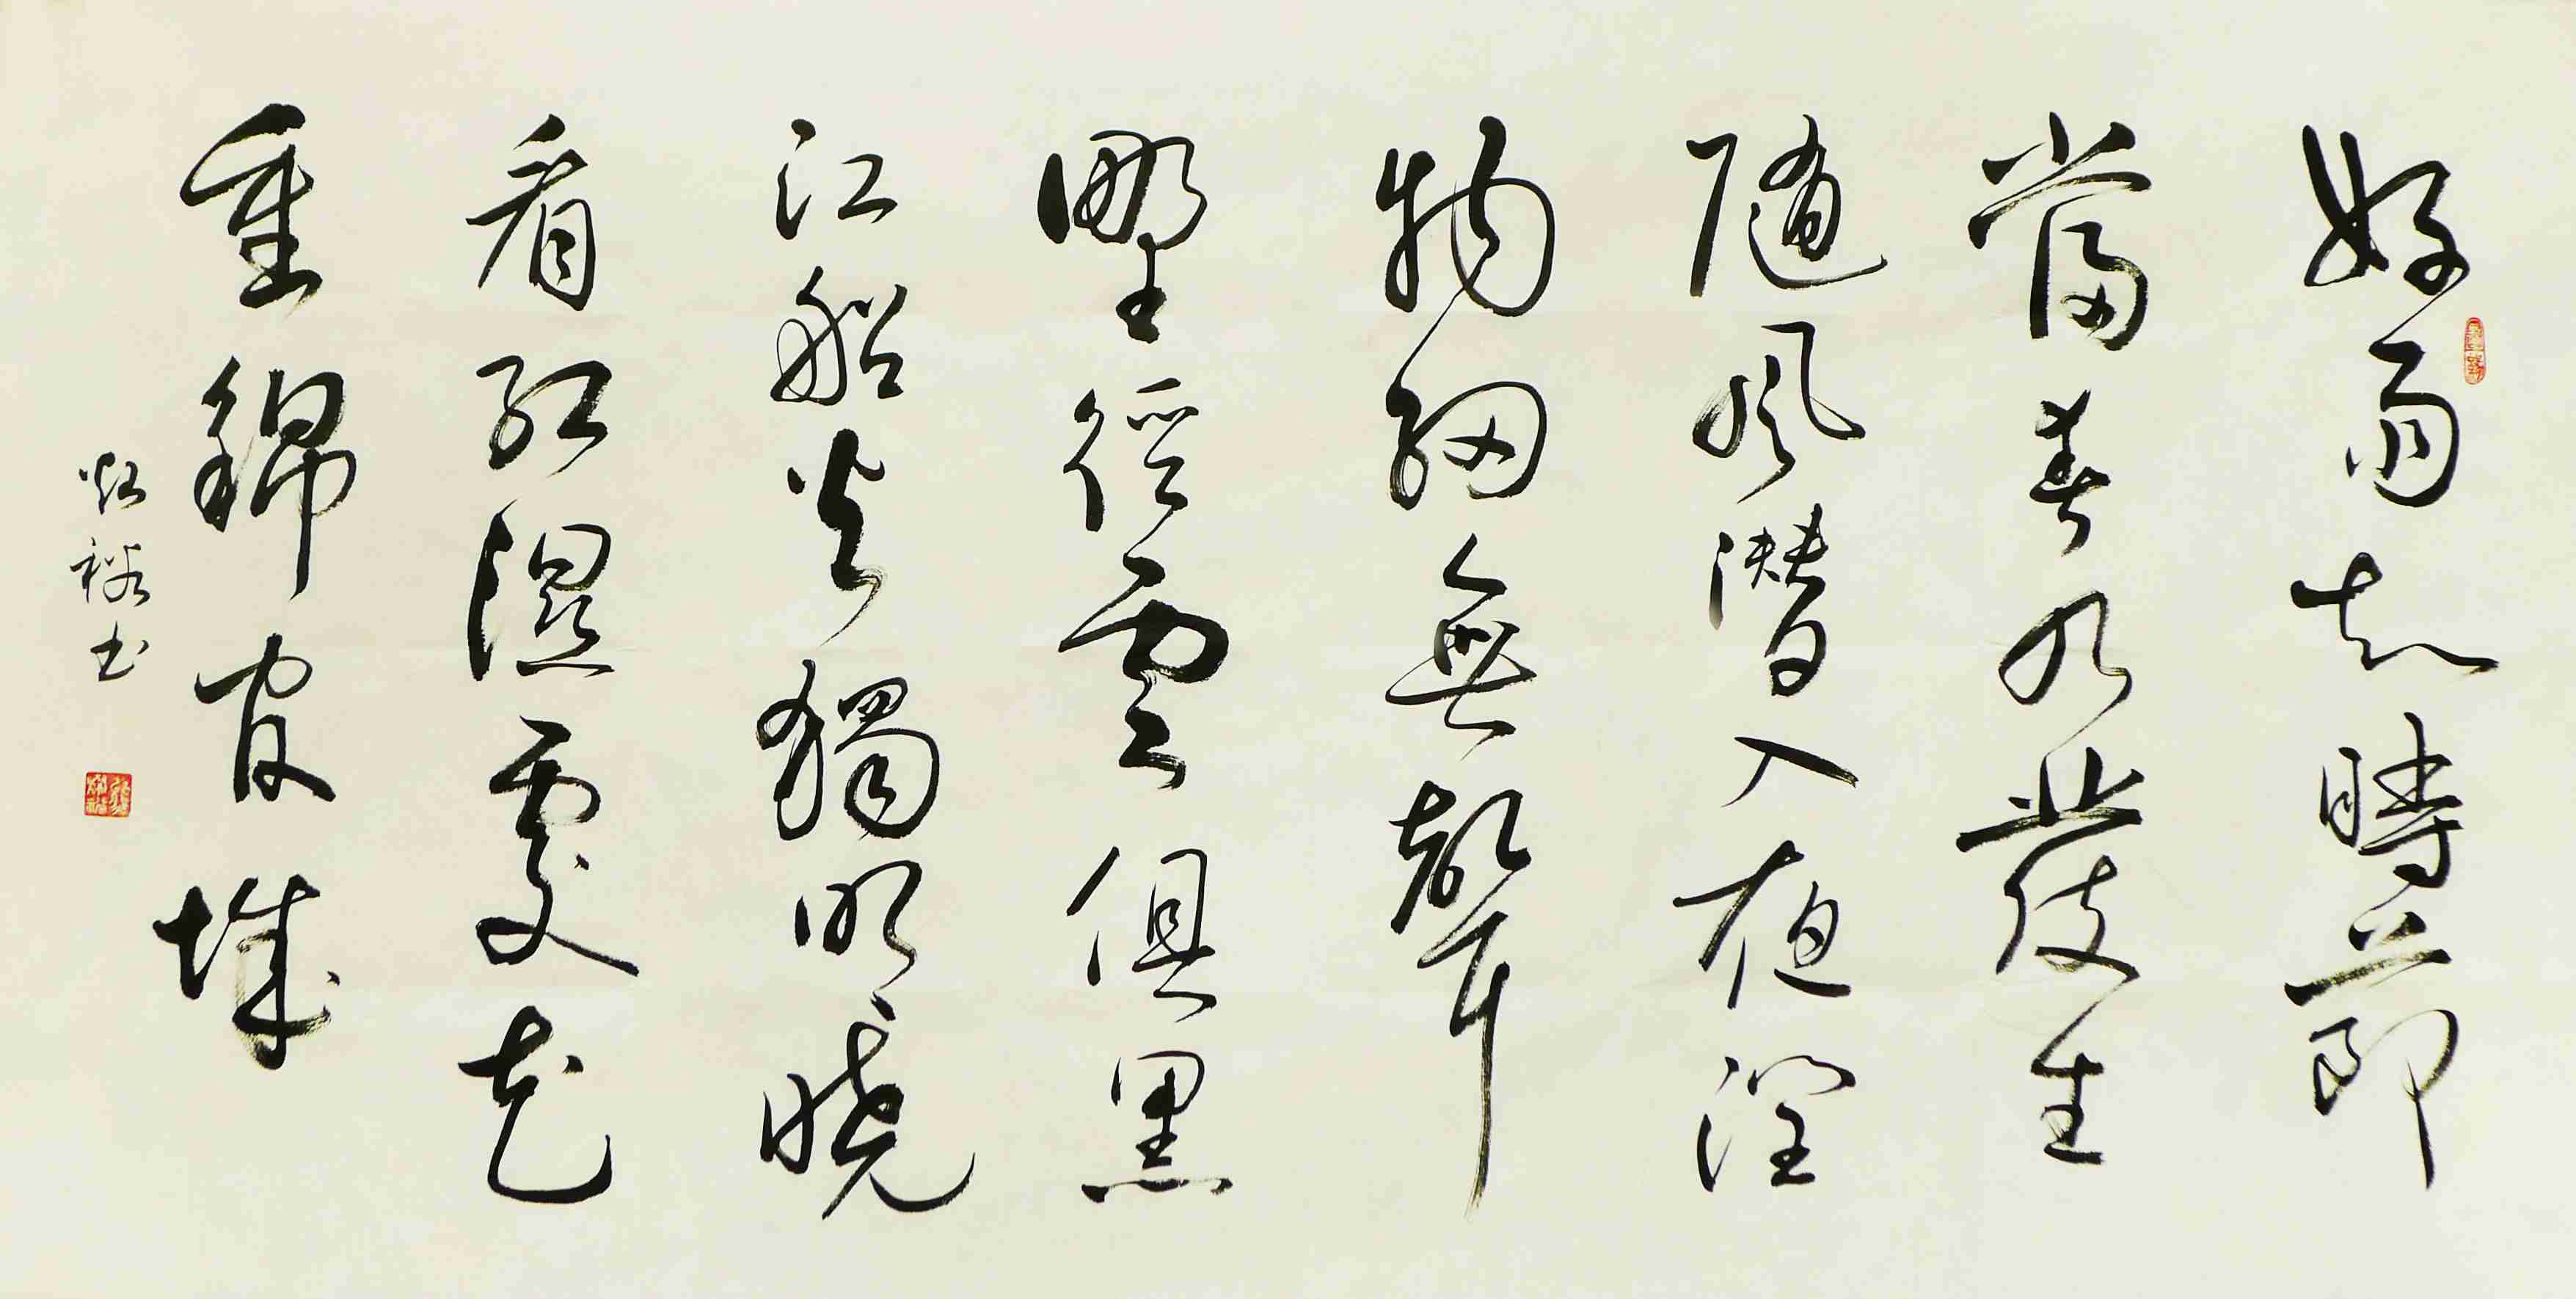 好雨知時節
當春乃發生
随風潛入夜潤
物細無聲
野徑雲俱黑
江船火獨明曉
看紅濕處花
重錦官城
裕书